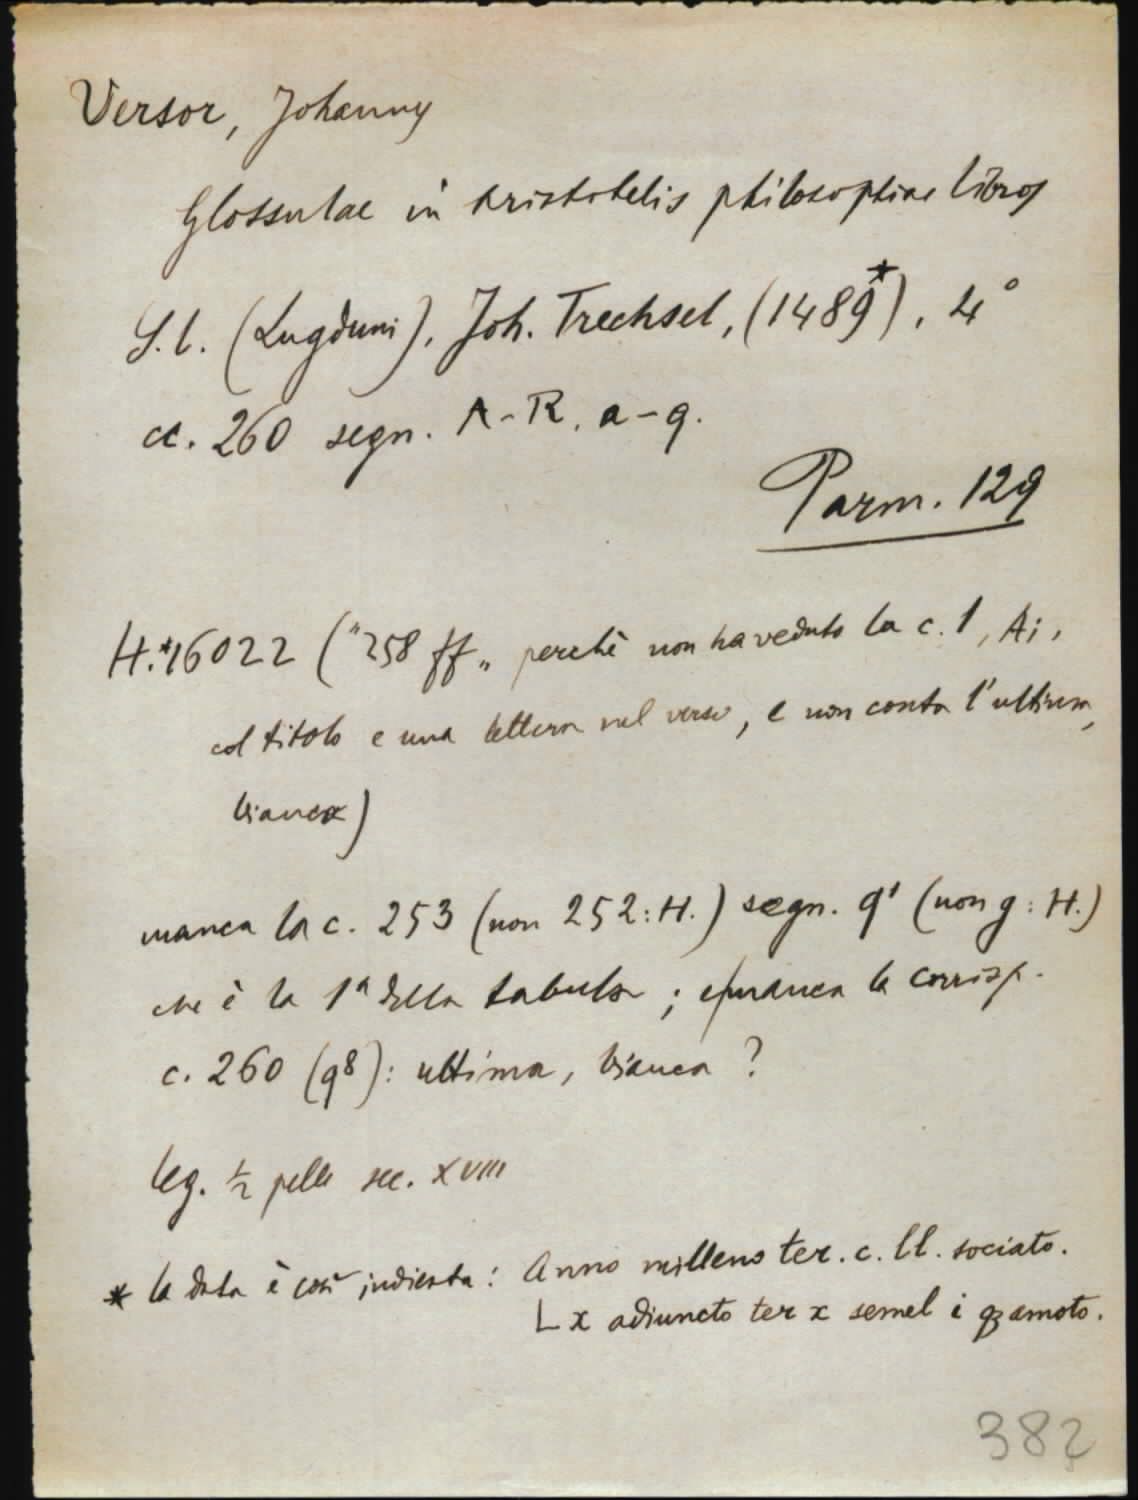 Versor, Johannes
Glossulae in Aristotelis philosophiae libros
S. l. (Lugduni), Joh. Trechsel, (1489*), 4°
cc. 260 segn. A-R, a-q.
Parm. 129
H.*16022 ("258 ff„ perchè non ha veduto la c. 1, Ai,
col titolo e una lettera nel verso, e non conta l'ultima,
bianca)
manca la c. 253 (non 252: H.) segn. q¹ (non g: H.)
che è la 1ª della tabula; e manca la corrisp.
c. 260 (q⁸): ultima, bianca?
leg. ½ pelle sec. XVIII
* la data è così indicata: Anno milleno ter. c. ll. sociato.
Lx adiuncto ter x semel i qz amoto.
382